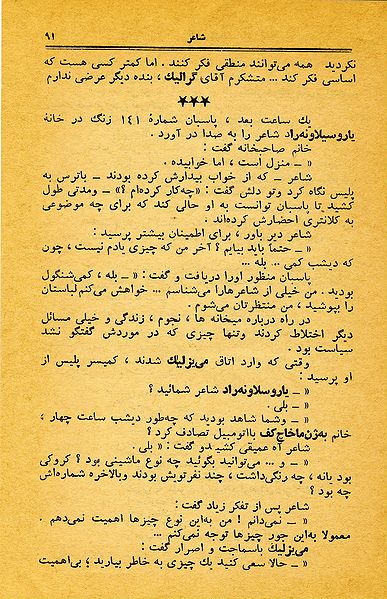 شاعر
۹۱
نکردید همه می‌توانند منطقی فکر کنند . اما کمتر کسی هست که
اساسی فکر کند ... متشکرم آقای گرالیك ، بنده دیگر عرضی ندارم
★★★
یك ساعت بعد ، پاسبان شمارهٔ ۱۴۱ زنگ در خانهٔ
یاروسیلاونه‌راد شاعر را به صدا در آورد .
خانم صاحبخانه گفت :
« ــ منزل است ، اما خوابیده .
شاعر ــ که از خواب بیدارش کرده بودند ــ باترس به
پلیس نگاه کرد وتو دلش گفت : «چه‌کار کرده‌ام ؟» ــ ومدتی طول
کشید تا پاسبان توانست به او حالی کند که برای چه موضوعی
به کلانتری احضارش کرده‌اند .
شاعر دیر باور ، برای اطمینان بیشتر پرسید :
« ــ حتماً باید بیایم ؟ آخر من که چیزی یادم نیست ، چون
که دیشب کمی .. بله ...
پاسبان منظور اورا دریافت و گفت : « ــ بله ، کمی‌شنگول
بودید . من خیلی از شاعرهارا می‌شناسم ... خواهش می‌کنم‌لباستان
را بپوشید ، من منتظرتان می‌شوم .
در راه درباره میخانه ها ، نجوم ، زندگی و خیلی مسائل
دیگر اختلاط کردند وتنها چیزی که در موردش گفتگو نشد
سیاست بود .
وقتی که وارد اتاق می‌یزلیك شدند ، کمیسر پلیس از
او پرسید :
« ــ یاروسلاونه‌راد شاعر شمائید ؟
« ــ بلی .
« ــ وشما شاهد بودید که چه‌طور دیشب ساعت چهار ،
خانم به‌ژن‌ماخاچ‌کف بااتومبیل تصادف کرد ؟
شاعر آه عمیقی کشیدو گفت : «بلی .
« ــ و ... می‌توانید بگوئید چه نوع ماشینی بود ؟ کروکی
بود یانه ، چه رنگی‌داشت ، چند نفرتویش بودند وبالاخره شماره‌اش
چه بود ؟
شاعر پس از تفکر زیاد گفت :
« ــ نمی‌دانم ! من به‌این نوع چیزها اهمیت نمی‌دهم .
معمولا به‌این جور چیزها توجه نمی‌کنم ...
می‌یزلیك باسماجت و اصرار گفت :
« ــ حالا سعی کنید یك چیزی به خاطر بیارید ؛ بی‌اهمیت